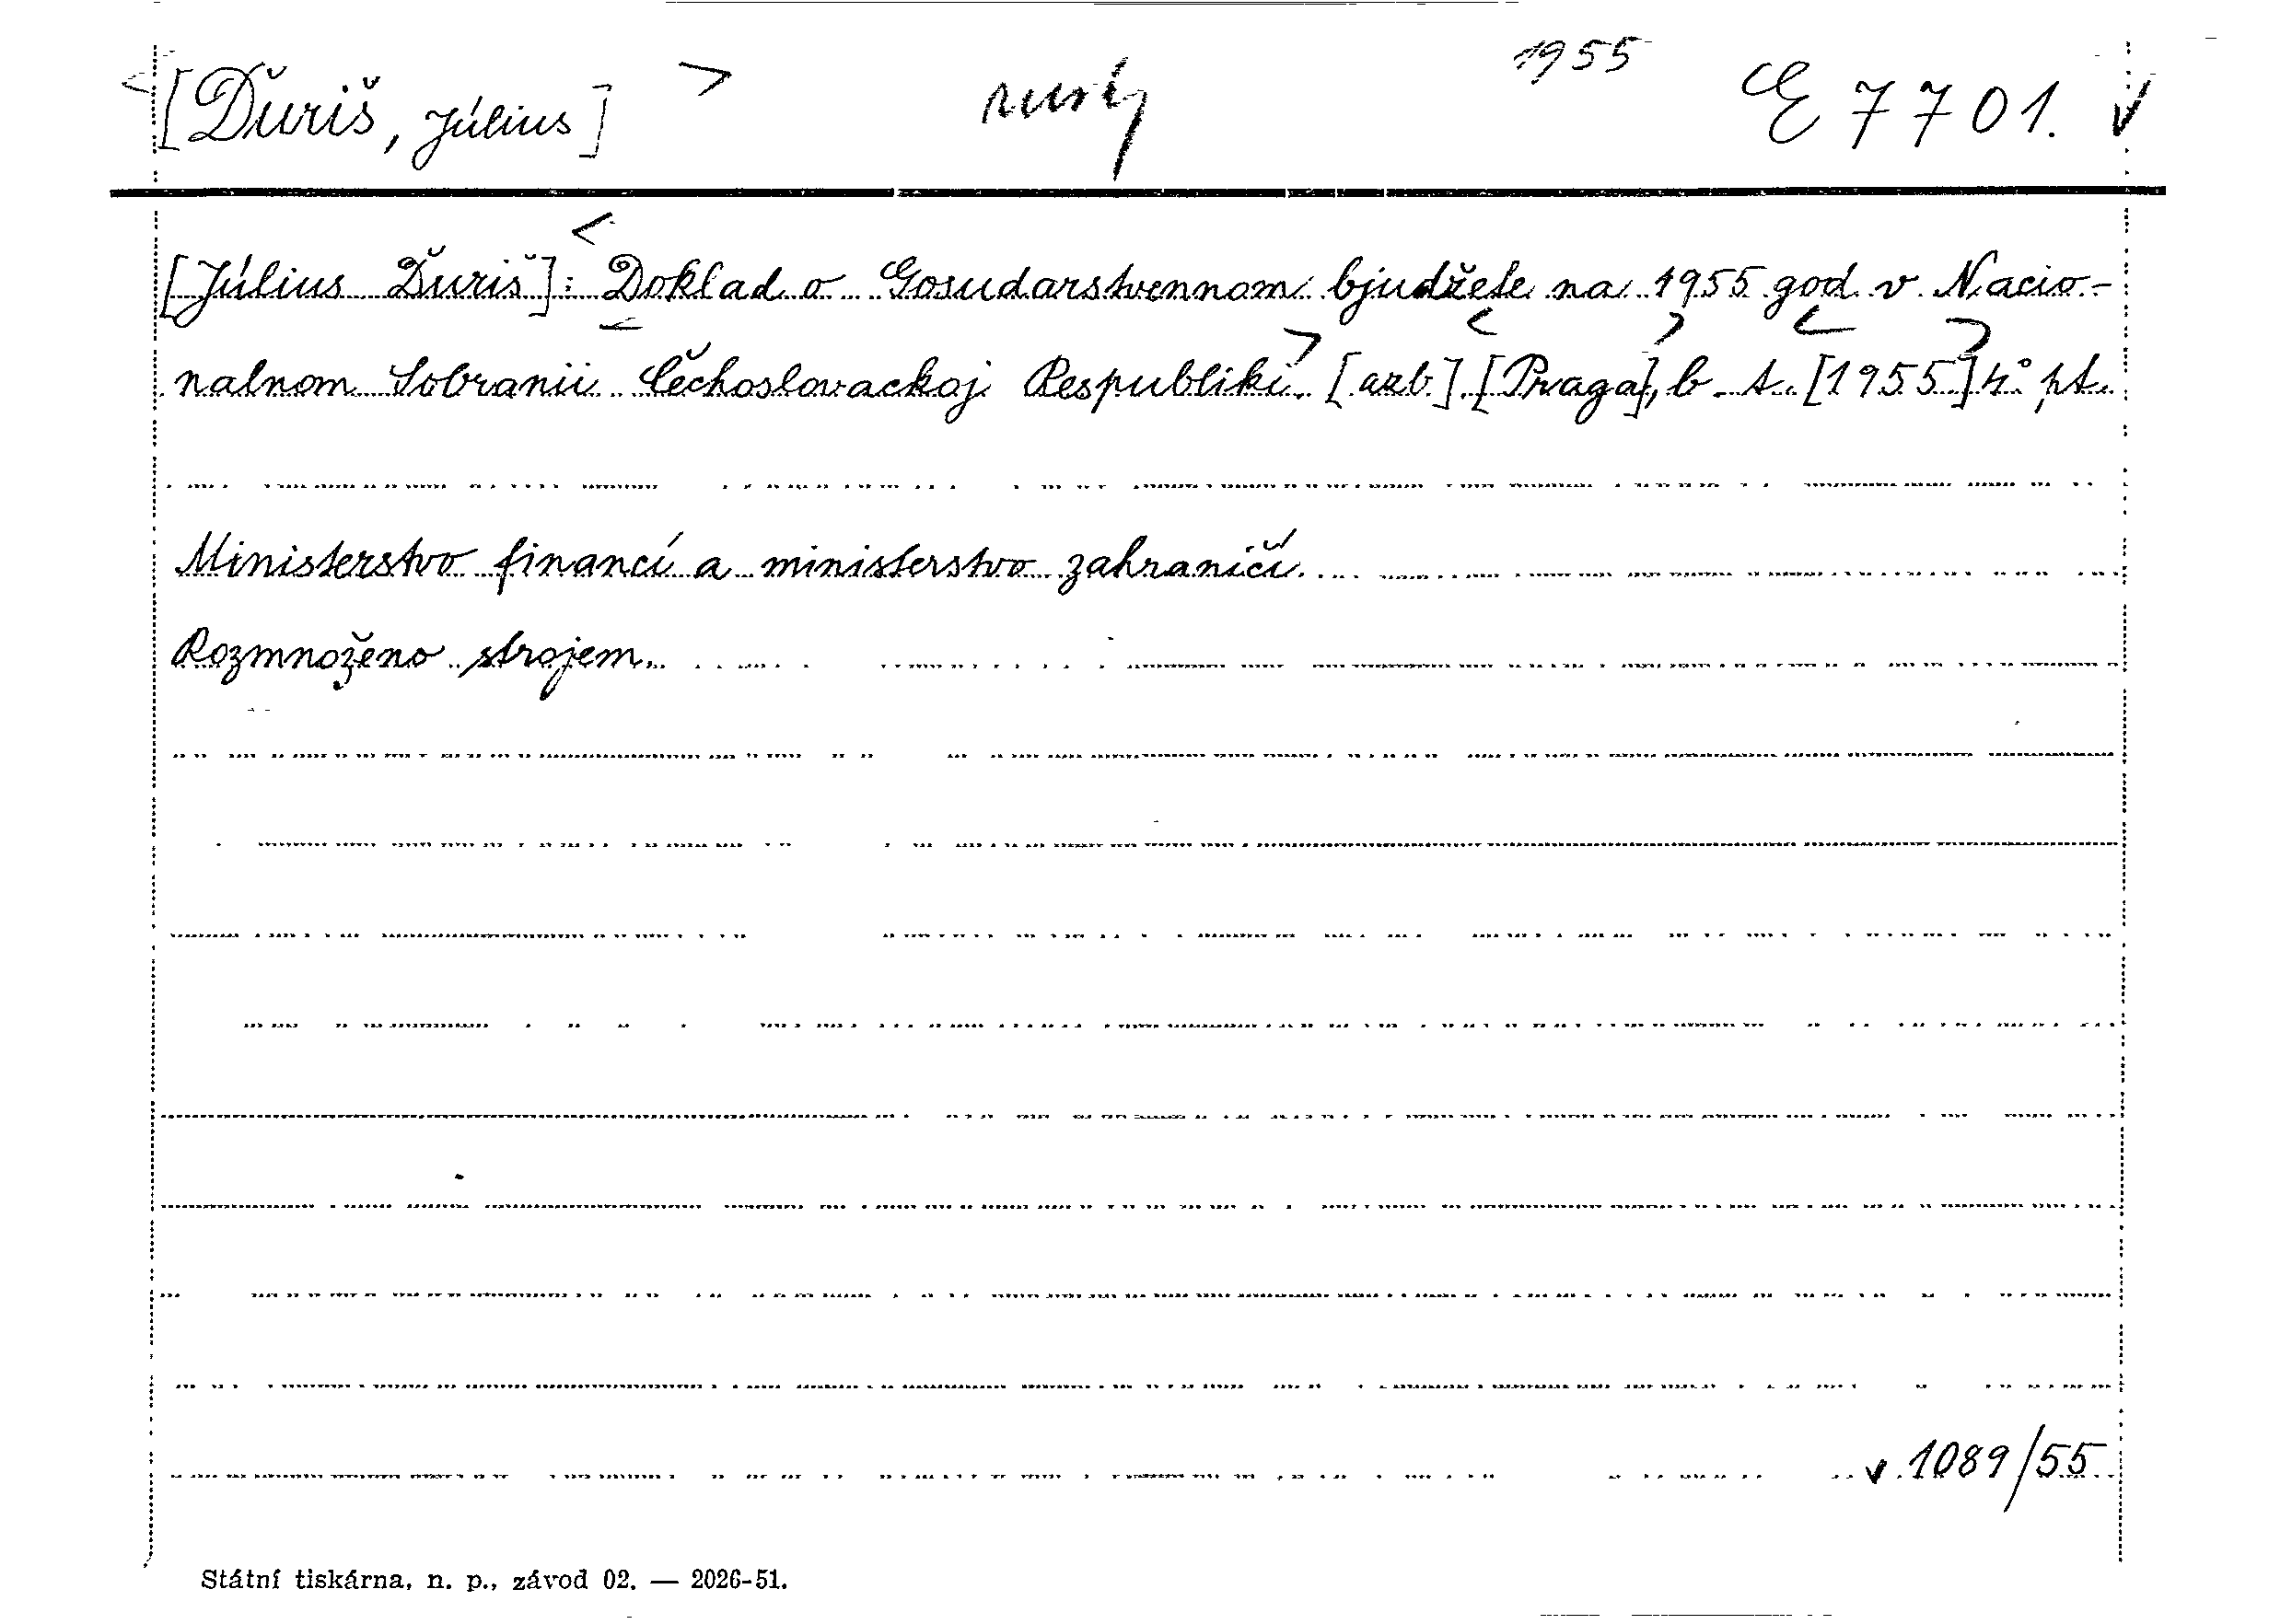 [Ďuriš, Július] 1955 E 7701.
[Július Ďuriš]: Doklad o Gosudarstvennom bjudžete na 1955 god v Nacio-
nalnom Sobranii Čechoslovackoj Respubliki. [azb.] [Praga], b. t. [1955] 4° pt.
Ministerstvo financí a ministerstvo zahraničí.
Rozmnoženo strojem.
1089/55
Státní tiskárna, n. p., závod 02. — 2026-51.